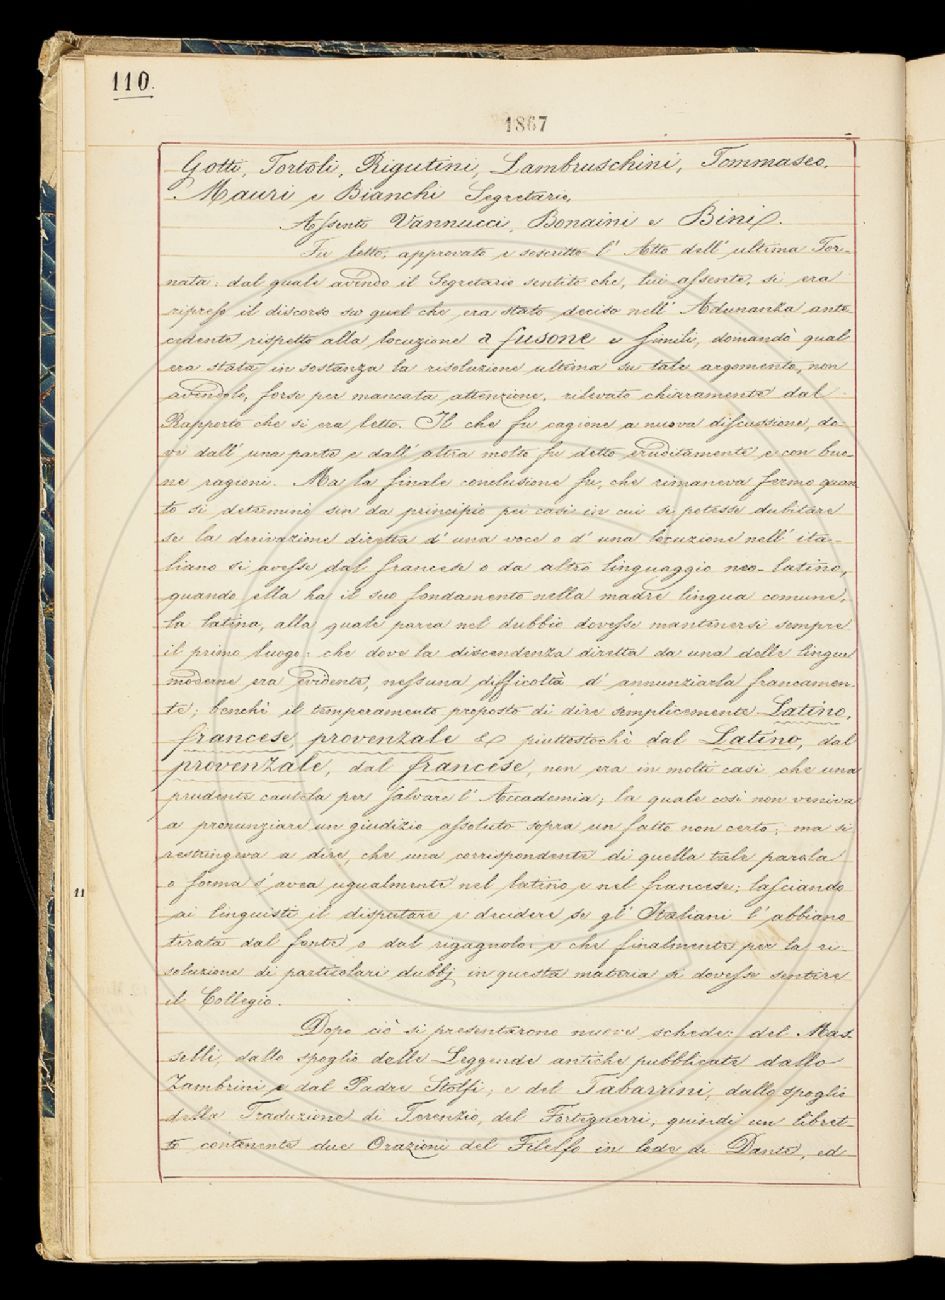 110.
1867
Gotti, Tortoli, Rigutini, Lambruschini, Tommaseo,
Mauri e Bianchi Segretario,
Assenti Vannucci, Bonaini e Bini.
Fu letto, approvato e soscritto l' Atto dell' ultima Tor-
nata: dal quale avendo il Segretario sentito che, lui assente, si era
ripreso il discorso su quel che era stato deciso nell' Adunanza ante-
cedente rispetto alla locuzione a fusone e simili, domandò qual
era stata in sostanza la risoluzione ultima su tale argomento, non
avendolo, forse per mancata attenzione, rilevato chiaramente dal
Rapporto che si era letto. Il che fu cagione a nuova discussione, do-
ve dall' una parte e dall' altra molto fu detto eruditamente e con buo-
ne ragioni. Ma la finale conclusione fu, che rimaneva fermo quan
to si determinò sin da principio pei casi in cui si potesse dubitare
se la derivazione diretta d' una voce o d' una locuzione nell' ita-
liano si avesse dal francese o da altro linguaggio neo-latino,
quando ella ha il suo fondamento nella madre lingua comune,
la latina, alla quale parea nel dubbio dovesse mantenersi sempre
il primo luogo: che dove la discendenza diretta da una delle lingue
moderne era evidente, nessuna difficoltà d' annunziarla francamen-
te; benchè il temperamento proposto di dire semplicemente Latino,
francese, provenzale &c piuttostochè dal Latino, dal
provenzale, dal francese, non era in molti casi che una
prudente cautela per salvare l' Accademia; la quale così non veniva
a pronunziare un giudizio assoluto sopra un fatto non certo; ma si
restringeva a dire, che una corrispondente di quella tale parola
o forma s' avea ugualmente nel latino e nel francese; lasciando
ai linguisti il disputare e decidere se gl' Italiani l' abbiano
tirata dal fonte o dal rigagnolo: e che finalmente per la ri-
soluzione di particolari dubbj in questa materia si dovesse sentire
il Collegio.
11
Dopo ciò si presentarono nuove schede: del Mas-
selli, dallo spoglio delle Leggende antiche pubblicate dallo
Zambrini e dal Padre Stolfi; e del Tabarrini, dallo spoglio
della Traduzione di Terenzio, del Forteguerri, quindi un libret-
to contenente due Orazioni del Filelfo in lode di Dante, ed